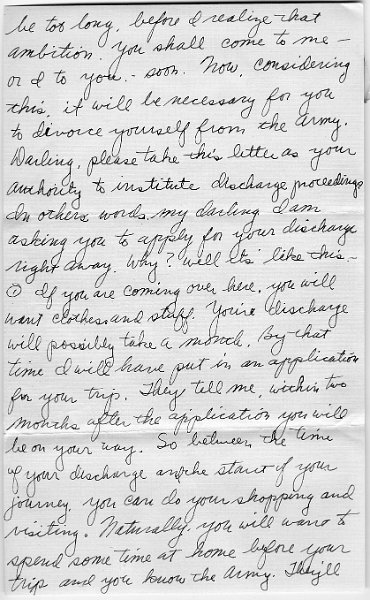 be too long, before I realize that
ambition. You shall come to me –
or I to you – soon. Now, considering
this, it will be necessary for you
to divorce yourself from the army.
Darling, please take this letter as your
authority to institute discharge proceedings
In others words, my darling I am
asking you to apply for your discharge
right away. Why? Well It's like this –
① If you are coming over here, you will
want clothes and stuff. You're discharge
will possibly take a month. By that
time I will have put in an application
for your trip. They tell me, within two
months after the application you will
be on your way. So between the time
of your discharge and the start of your
journey, you can do your shopping and
visiting. Naturally you will want to
spend some time at home before your
trip and you know the Army. They'll